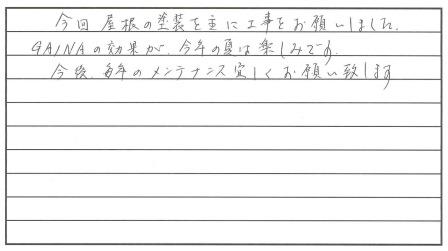 今回 屋根の塗装を主に工事をお願いしました。
GAINAの効果が、今年の夏は楽しみです。
今後、毎年のメンテナンス宜しくお願い致します